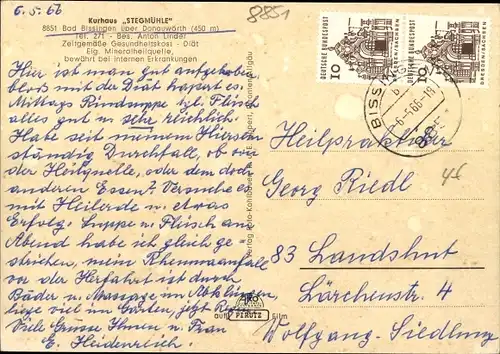 6.5.66
8851
Kurhaus "STEGMÜHLE"
8851 Bad Bissingen über Donauwörth (450 m)
Tel. 271 - Bes. Anton Linder
Zeitgemäße Gesundheitskost - Diät
Eig. Mineralheilquelle,
bewährt bei internen Erkrankungen
Hier ist man gut aufgehoben
bloß mit der Diät hapert es.
Mittags Rindsuppe bzl. Fleisch
alles gut u sehr reichlich.
Habe seit meinem Hiersein
ständig Durchfall, ob von
der Heilquelle, oder dem doch
anderen Essen? Versuche es
mit Heilerde u. etwas
Erfolg. Suppe u Fleisch am
Abend habe ich gleich ge-
strichen, mein Rheumaanfall
vor der Herfahrt ist durch
Bäder u. Massage im Abklingen,
liege viel im Garten, jetzt
Viele Grüsse Ihnen u. Frau
E. Heidenreich.
DEUTSCHE BUNDESPOST
10
DRESDEN/SACHSEN
DEUTSCHE BUNDESPOST
10
DRESDEN/SACHSEN
BISSINGEN
-6.-5.66-19
Heilpraktiker
Georg Riedl
83 Landshut
Lärchenstr. 4
Wolfgang-Siedlung
auf PERUTZ Film